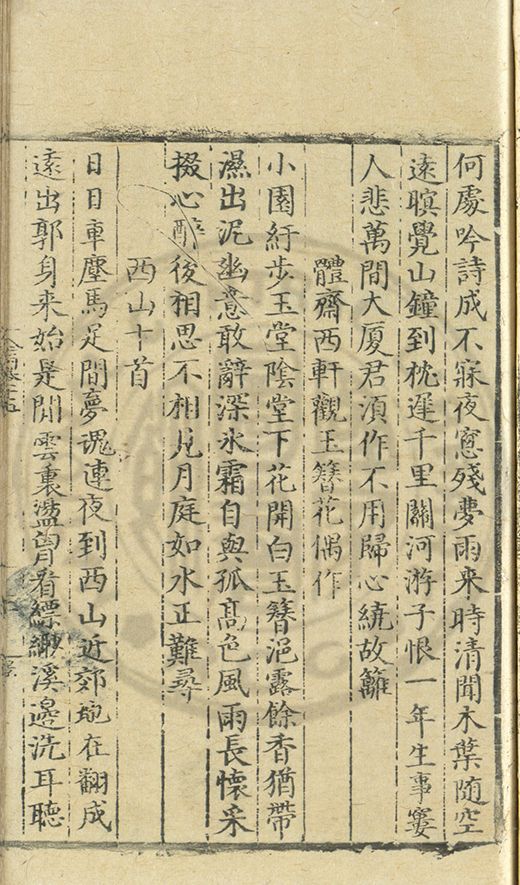 何處吟詩成不寐夜窓殘夢雨来時清聞木葉随空
遠暝覺山鐘到枕遲千里關河游子恨一年生事寠
人悲萬間大厦君湏作不用歸心繞故籬
體齋西軒觀玉簪花偶作
小園紆步玉堂陰堂下花開白玉簪浥露餘香猶帶
濕出泥幽意敢辭深氷霜自與孤髙色風雨長懷采
掇心醉後相思不相見月庭如水正難尋
西山十首
日日車塵馬足間夢魂連夜到西山近郊地在翻成
逺出郭身来始是閒雲裏盪胷看縹緲溪邊洗耳聽